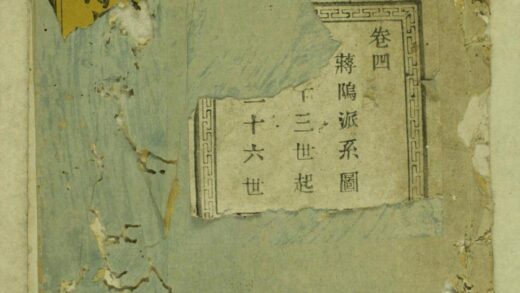 卷四
蔣隖派系圖
十三世起
十六世